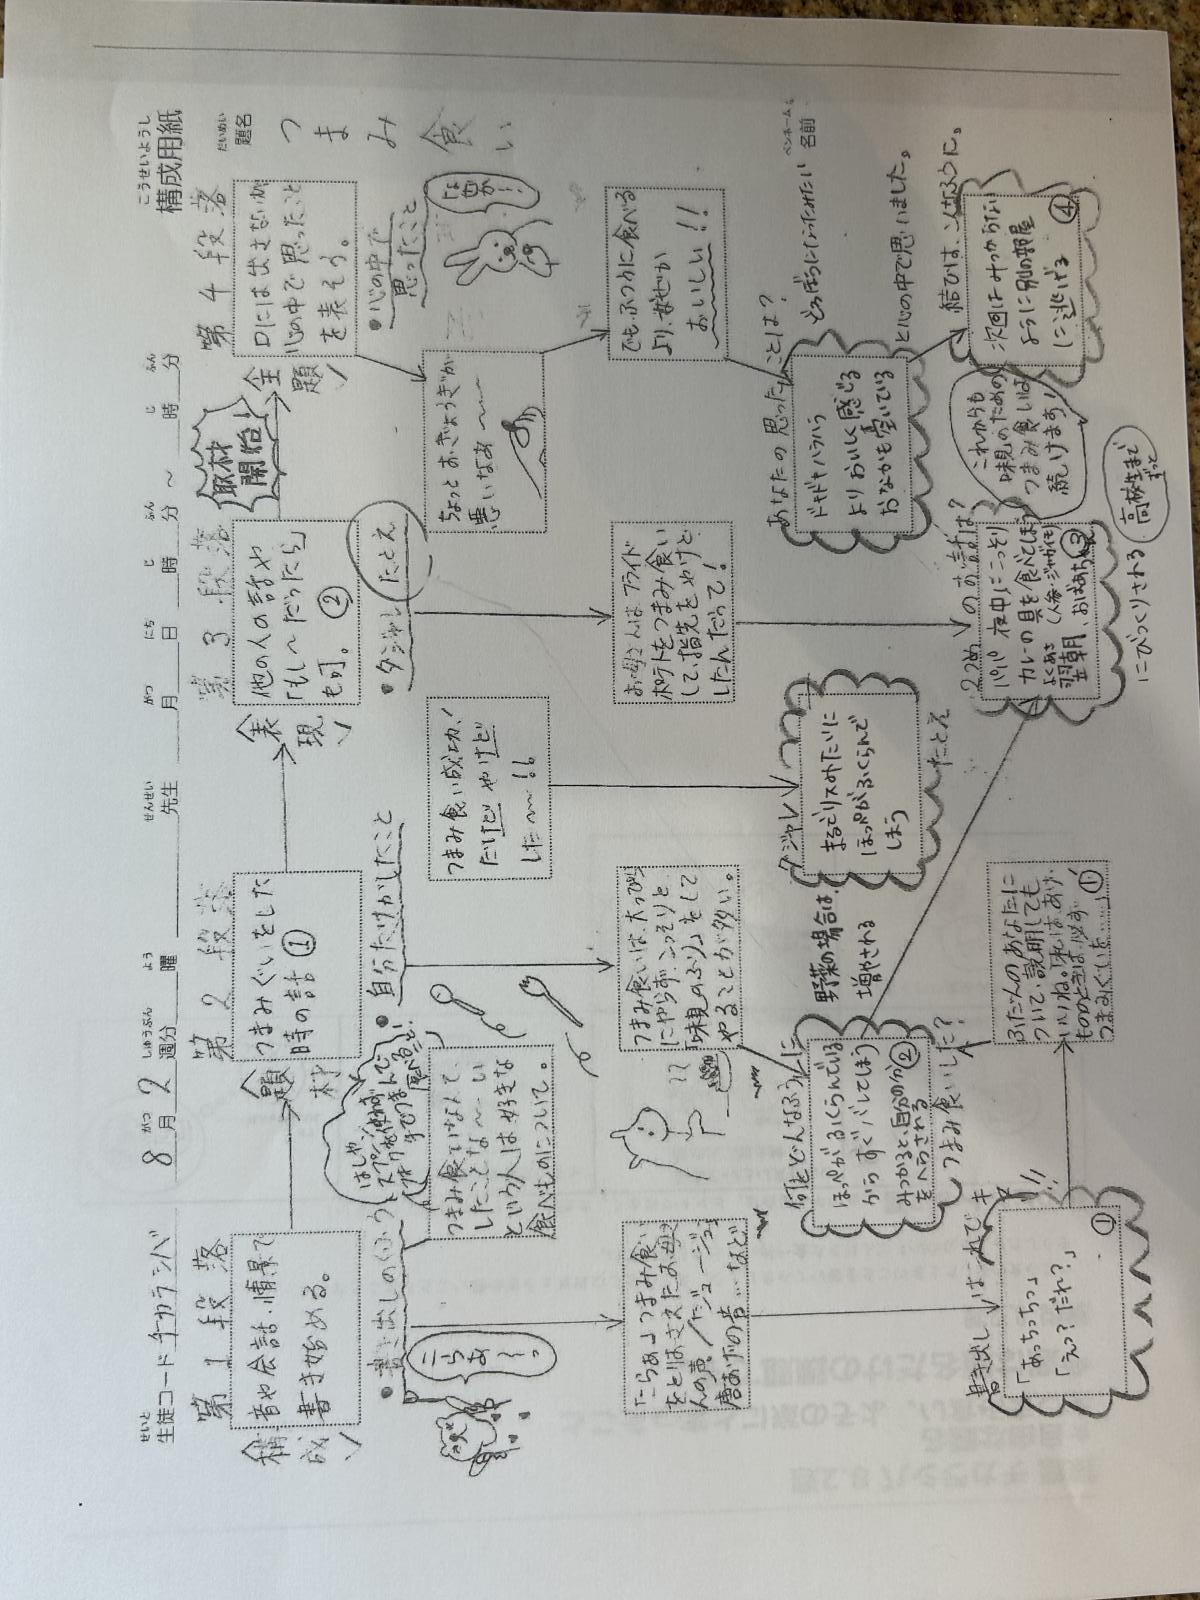 こうせいようし
構成用紙
だいめい
題名
つまみ食い
ペンネーム
名前
どろぼうになったみたい
せいと
生徒コード
チカラシバ
がつ しゅうぶん よう
8月2週分 曜
せんせい
先生
がつ にち じ ふん じ ふん
月 日 時 分 ~ 時 分
第1段落
構成
音や会話・情景で
書き始める。
・書き出しのくふう
こらあ~っ
「こらぁ」つまみ食い
をとりおさえたお母
さんの声/「ジュージュ」
唐あげの音…など
書き出しはこれでキマリ!!
「あっちっち」
「えっ?だれ?」
①
第2段落
題材
つまみぐいをした
時の話①
・自分だけがしたこと
つまみ食いなんて、
したことな~い
という人は好きな
食べものについて。
つまみ食いは、大っぴら
にやらず、こっそりと
「味見のふり」をして
やることが多い。
何をどんなふうに
つまみ食いした?
ほっぺがふくらんでいる
からすぐバレてしまう
みつかると、自分の分
をへらされる
②
野菜の場合は、
増やされる
ふだんのあなたに
ついて、説明しても
いいね。「ぼくはあげ
ものときは必ず
つまみぐいを……」
①
第3段落
表現
他の人の話や
「もし~だったら」
も可。
②
・ダジャレ たとえ
つまみ食い成功、!
だけど やけど
した~!!
お母さんは フライド
ポテトをつまみ食い
して、指先をやけど
したんだって!
ダジャレ
まるでリスみたいに
ほっぺがふくらんで
しまう
たとえ
2つめのお話は?
パパ 夜中にこっそり
カレーの具を食べてしまう
(人参・ジャガイモ)
翌朝、おばあちゃん
③
にびっくりされる
高校生まで
第4段落
取材
開始!
主題
口には出さないが
心の中で思ったこと
を表そう。
・心の中で
思ったこと
ちょっと おぎょうぎが
悪いなあ~
でも、ふつうに食べる
より、なぜか
おいしい!!
あなたの思ったことは?
ドキドキハラハラ
よりおいしく感じる
おなかも空いている
と心の中で思いました。
結びは、こんなふうに。
次回はみつからない
ように別の部屋
に逃げる
④
これからも
味見のための
つまみ食いは
続けます!